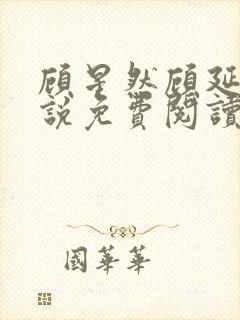 顾星然顾延
說免費閱讀
國華華